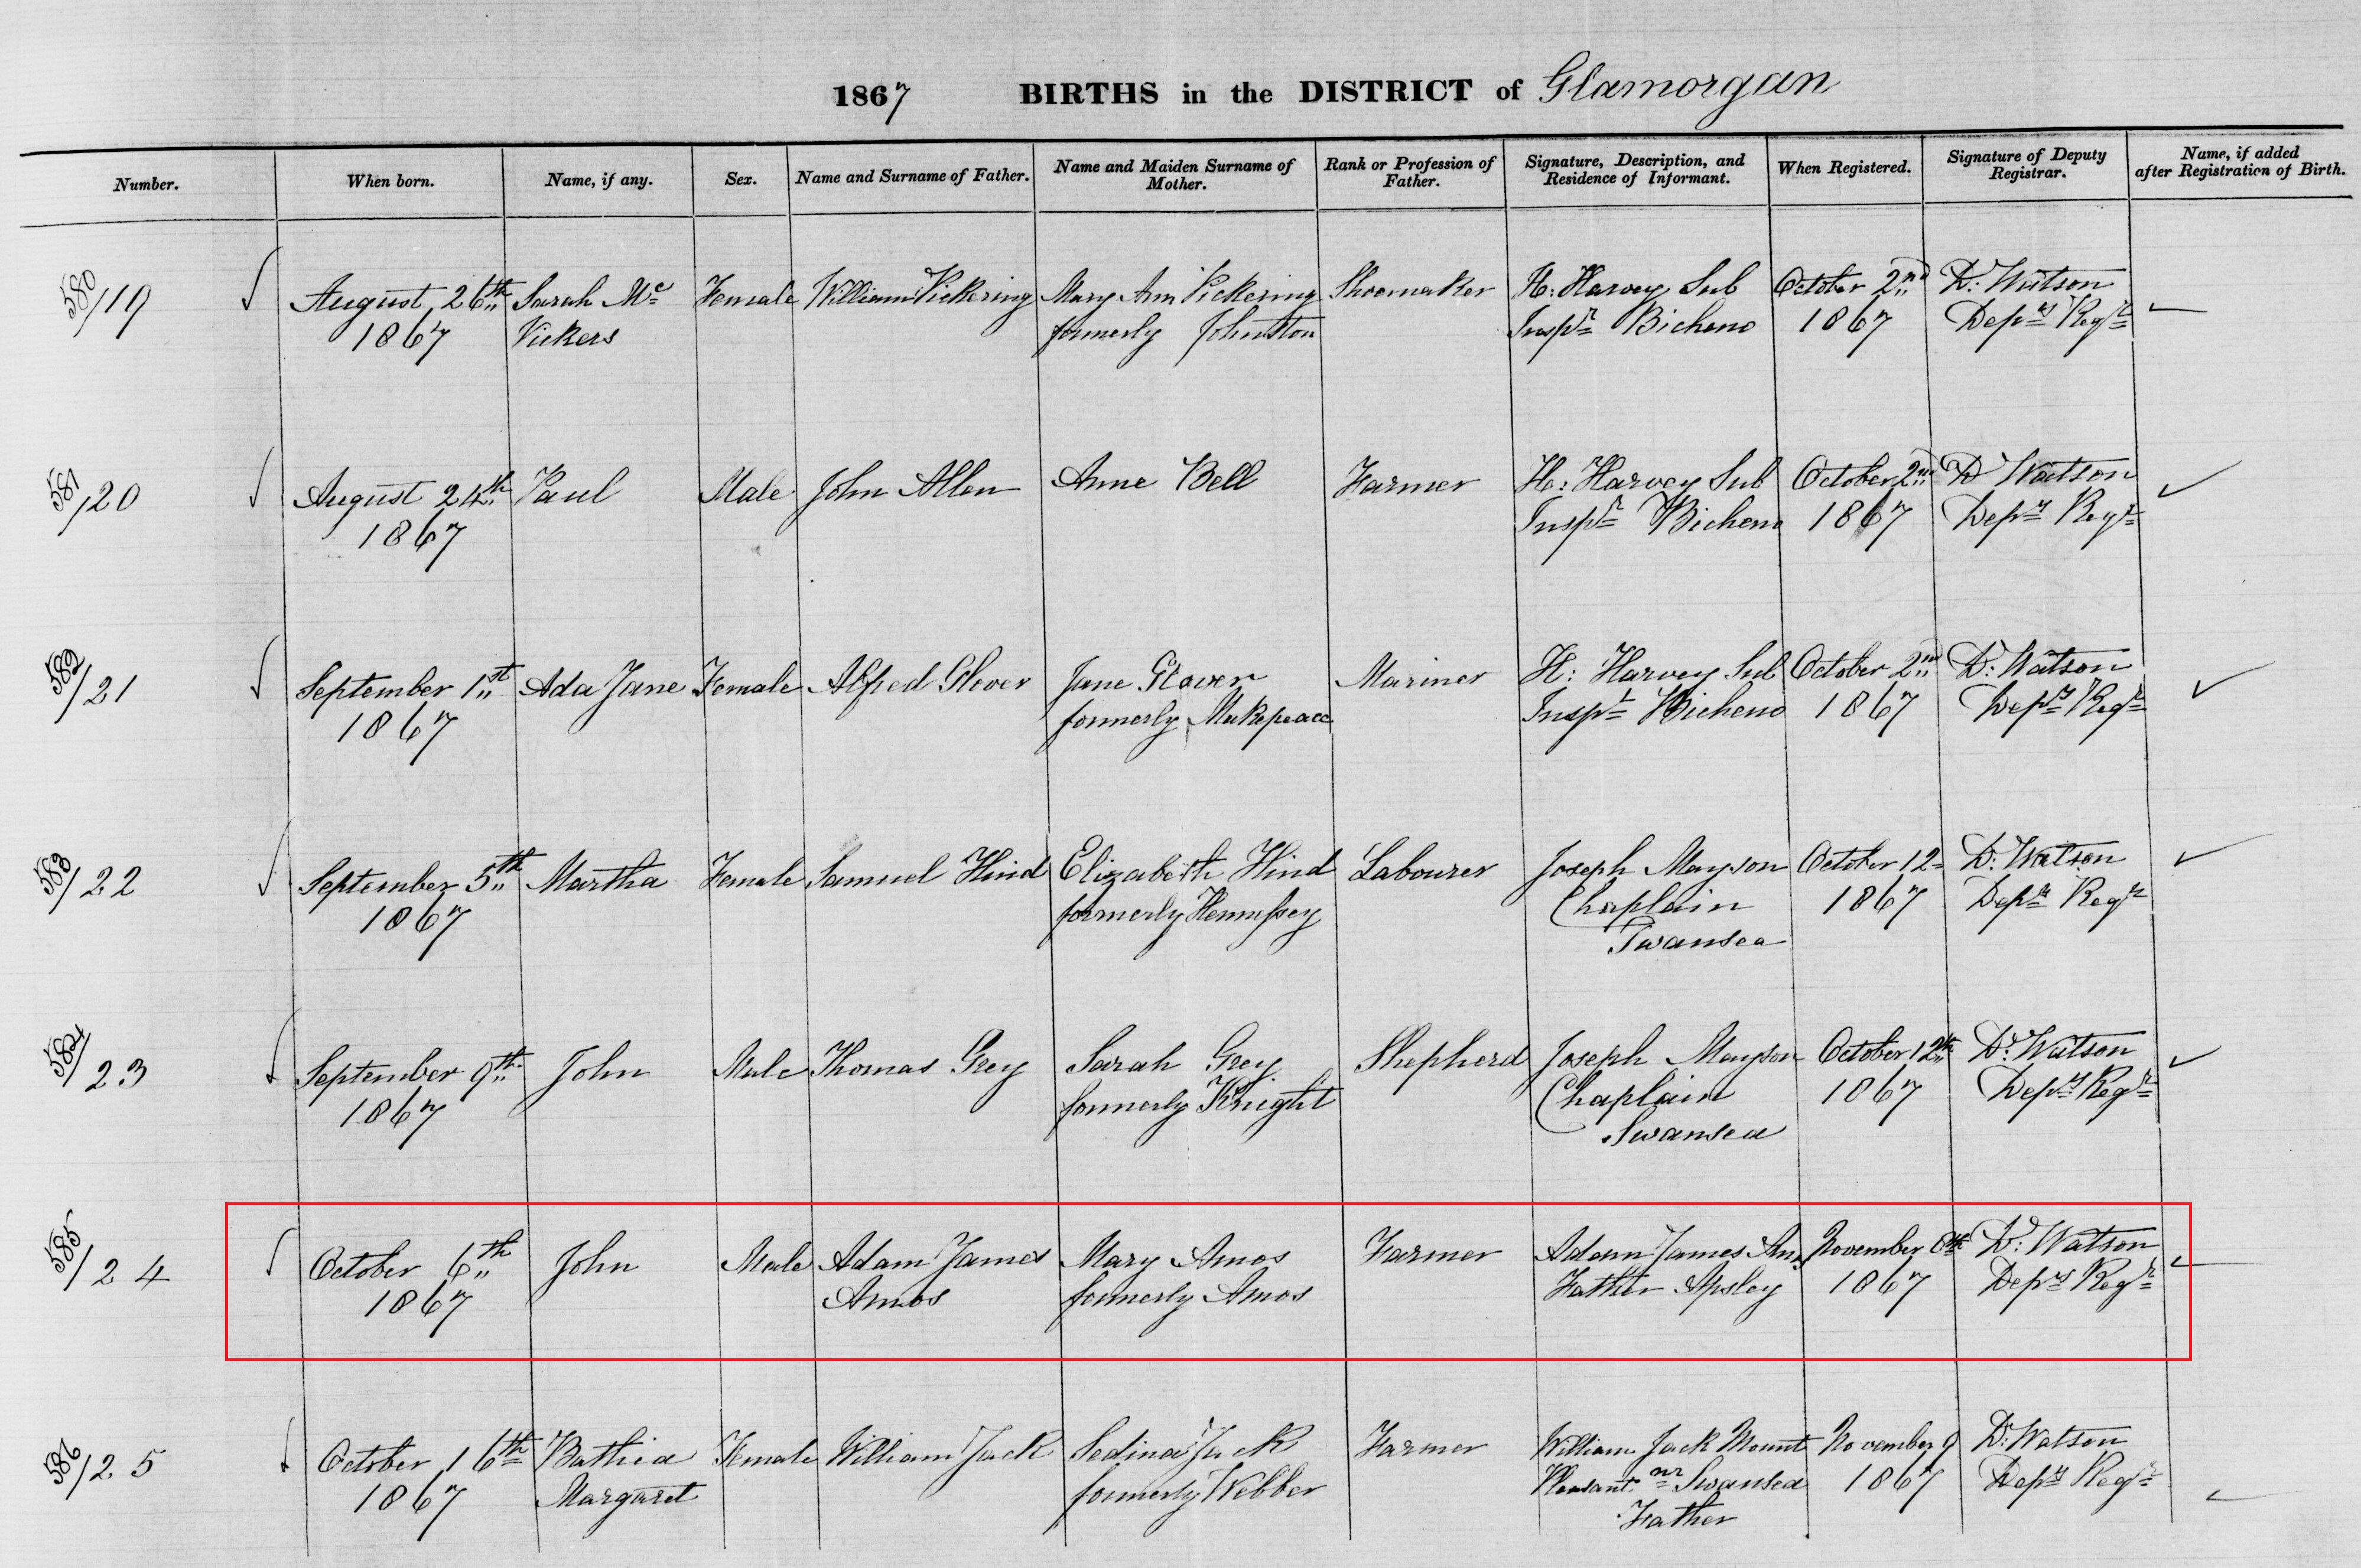 1867 BIRTHS in the DISTRICT of Glamorgan
Number. When born. Name, if any. Sex. Name and Surname of Father. Name and Maiden Surname of Mother. Rank or Profession of Father. Signature, Description, and Residence of Informant. When Registered. Signature of Deputy Registrar. Name, if added after Registration of Birth.
580/19 August 26th Sarah Mc Female William Pickering Mary Ann Pickering Shoemaker H: Harvey Sub October 2nd D: Watson
1867 Vickers formerly Johnston Inspr Bicheno 1867 Depy Regr
581/20 August 24th Paul Male John Allen Anne Bell Farmer H: Harvey Sub October 2nd D Watson
1867 Inspr Bicheno 1867 Depy Regr
582/21 September 1st Ada Jane Female Alfred Glover Jane Glover Mariner H: Harvey Sub October 2nd D: Watson
1867 formerly Makepeace Inspr Bicheno 1867 Depy Regr
583/22 September 5th Martha Female Samuel Hind Elizabeth Hind Labourer Joseph Mayson October 12 D: Watson
1867 formerly Hennessey Chaplain 1867 Depy Regr
Swansea
584/23 September 9th John Male Thomas Grey Sarah Grey Shepherd Joseph Mayson October 12th D: Watson
1867 formerly Knight Chaplain 1867 Depy Regr
Swansea
585/24 October 6th John Male Adam James Mary Amos Farmer Adam James November 6th D: Watson
1867 Amos formerly Amos Father Apsley 1867 Depy Regr
586/25 October 16th Bathia Female William Jack Sedina Jack Farmer William Jack Mount November 9 D: Watson
1867 Margaret formerly Webber Pleasant nr Swansea 1867 Depy Regr
Father